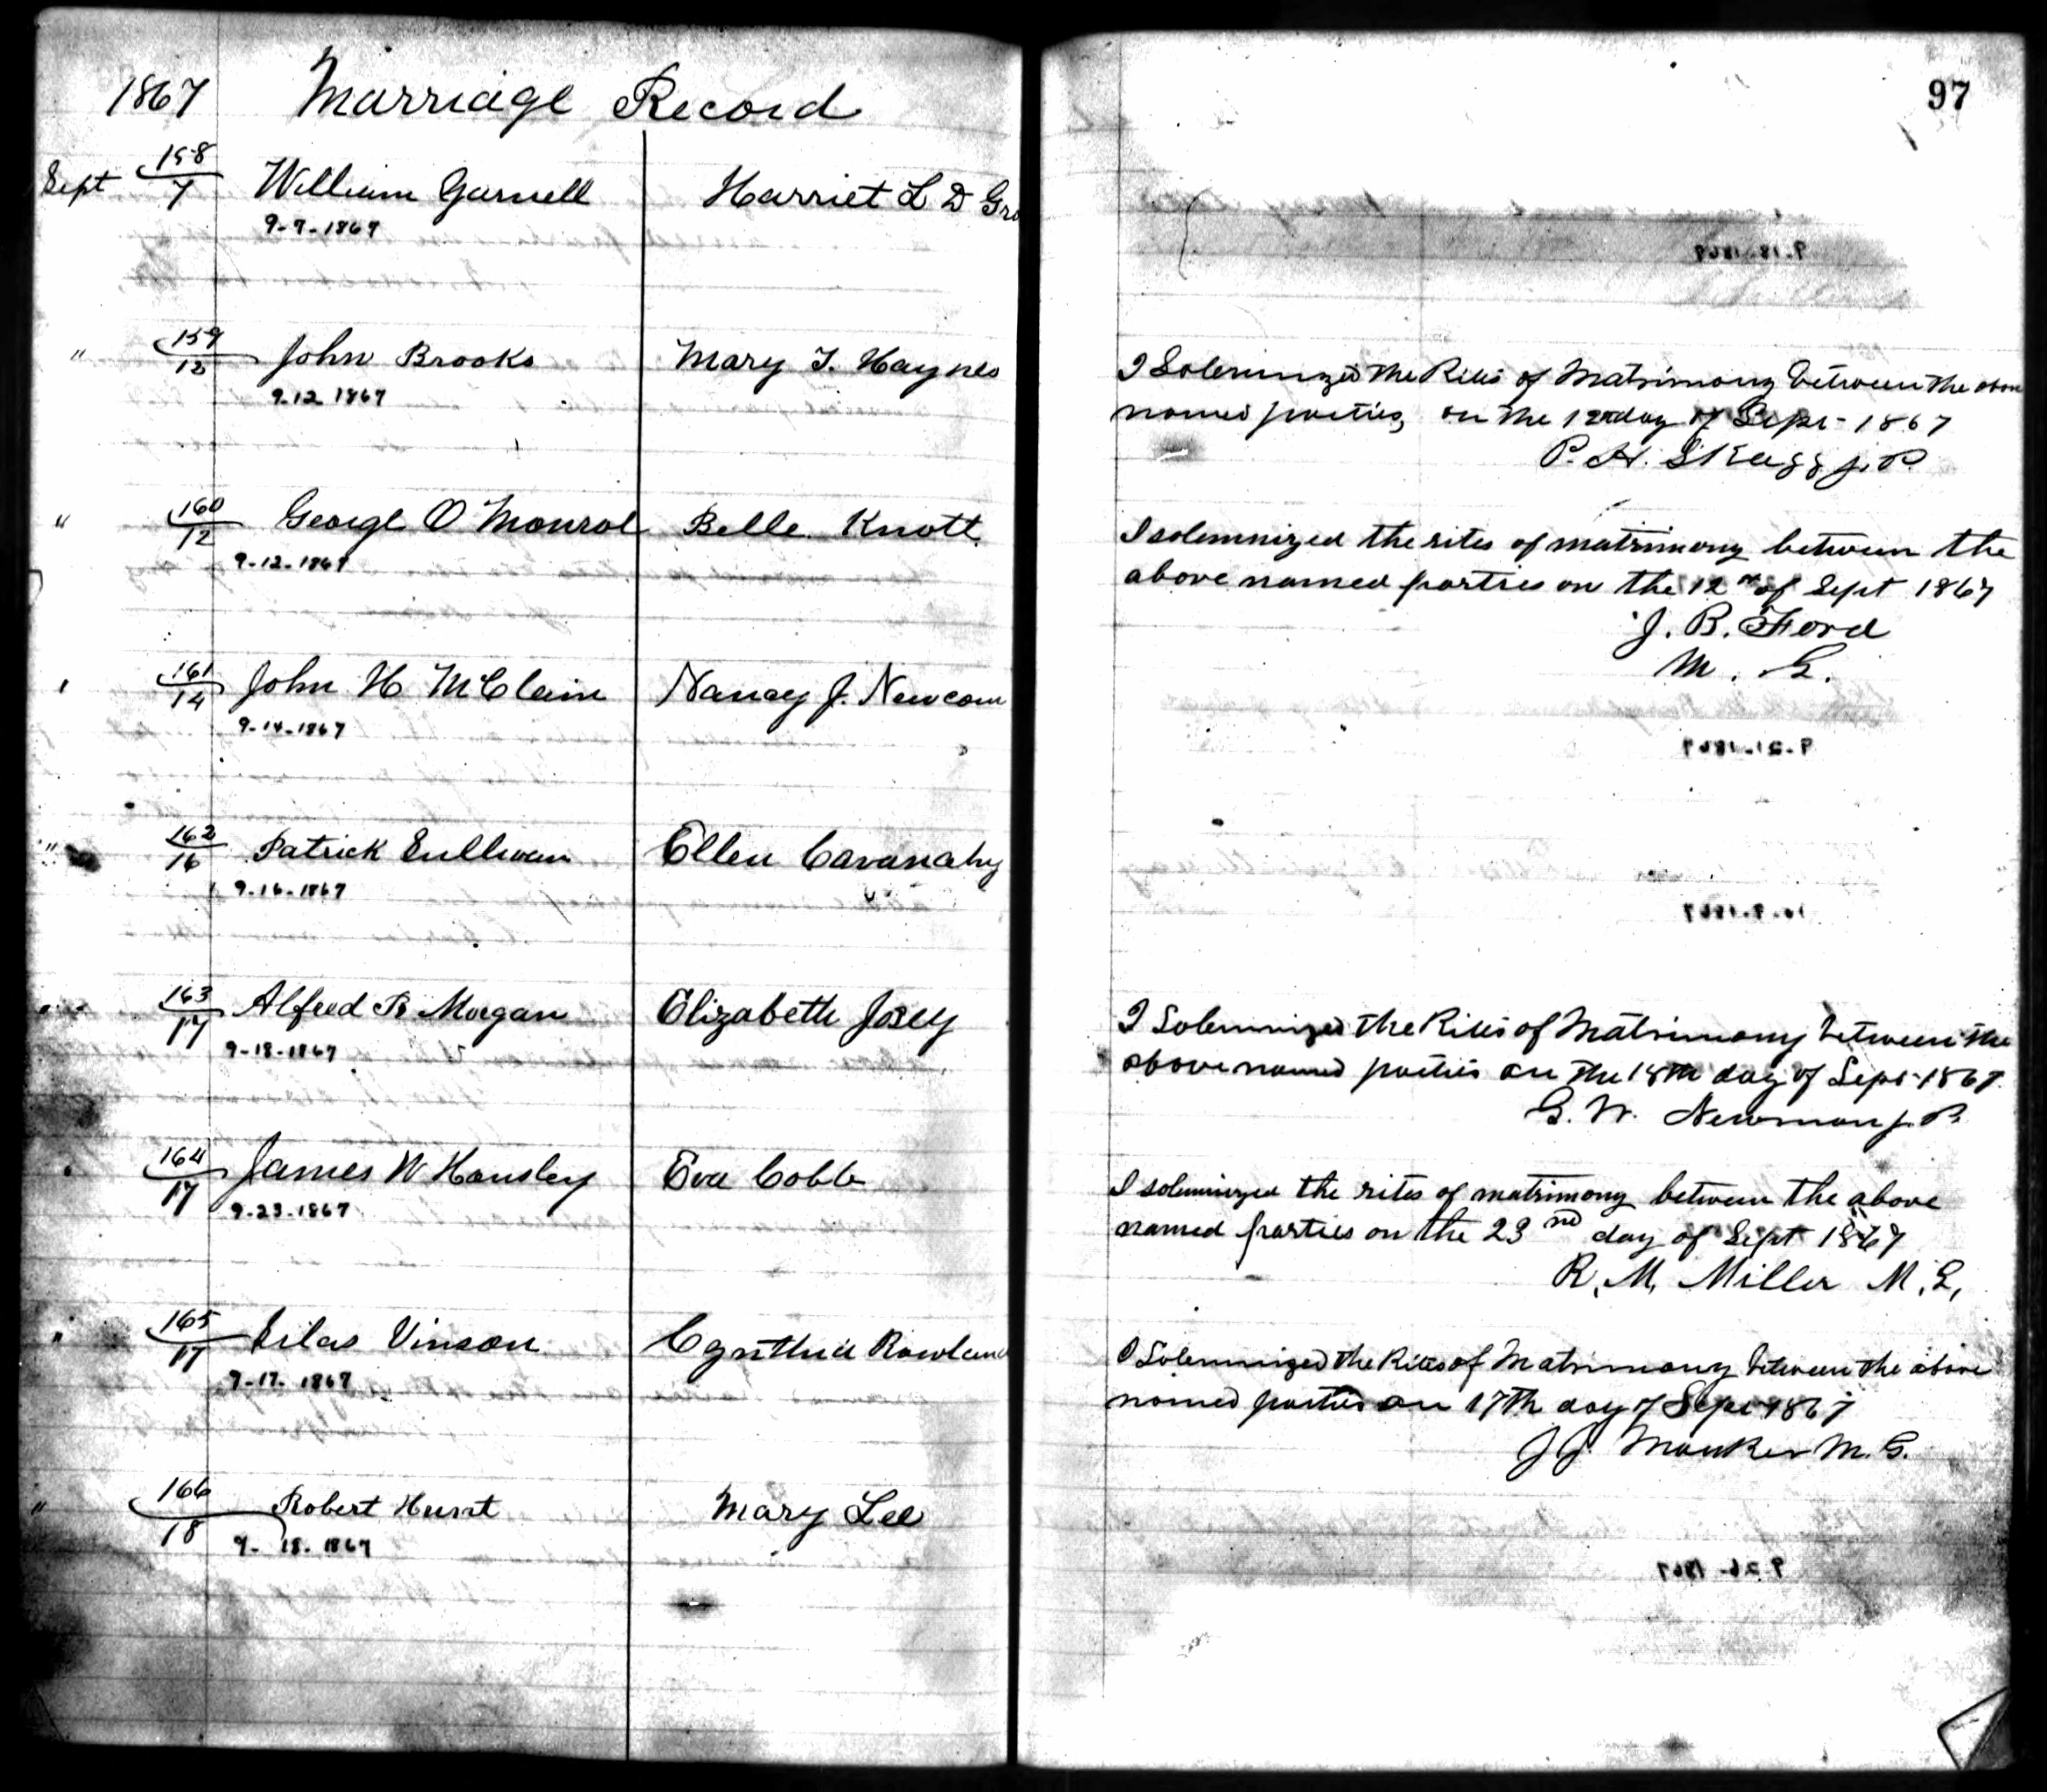 1867 Marriage Record
97
Sept 158/7 William Garnell Harriet L D Gro
9-7-1867
" 159/12 John Brooks Mary T. Haynes
9-12 1867
I Solemnized the Rites of Matrimony between the above
named parties, on the 12th day of Sept - 1867
P. H. Skaggs J. P.
" 160/12 George O Monroe Belle Knott
9-12-1867
I solemnized the rites of matrimony between the
above named parties on the 12th of Sept 1867
J. B. Ford
M. G.
" 161/14 John H McClain Nancy J. Newcom
9-14-1867
" 162/16 Patrick Sullivan Ellen Cavanahy
9-16-1867
" 163/17 Alfred B Morgan Elizabeth Josey
9-18-1867
I Solemnized the Rites of Matrimony between the
above named parties on the 18th day of Sept - 1867
G. W. Newman J. P.
" 164/17 James W Hansley Eva Cobb
9-23-1867
I solemnized the rites of matrimony between the above
named parties on the 23nd day of Sept 1867
R. M. Miller M. G.
" 165/17 Silas Vinson Cynthia Rowland
9-17-1867
I Solemnized the Rites of Matrimony between the above
named parties on 17th day of Sept 1867
J J. Manker M. G.
" 166/18 Robert Hunt Mary Lee
9-18-1867